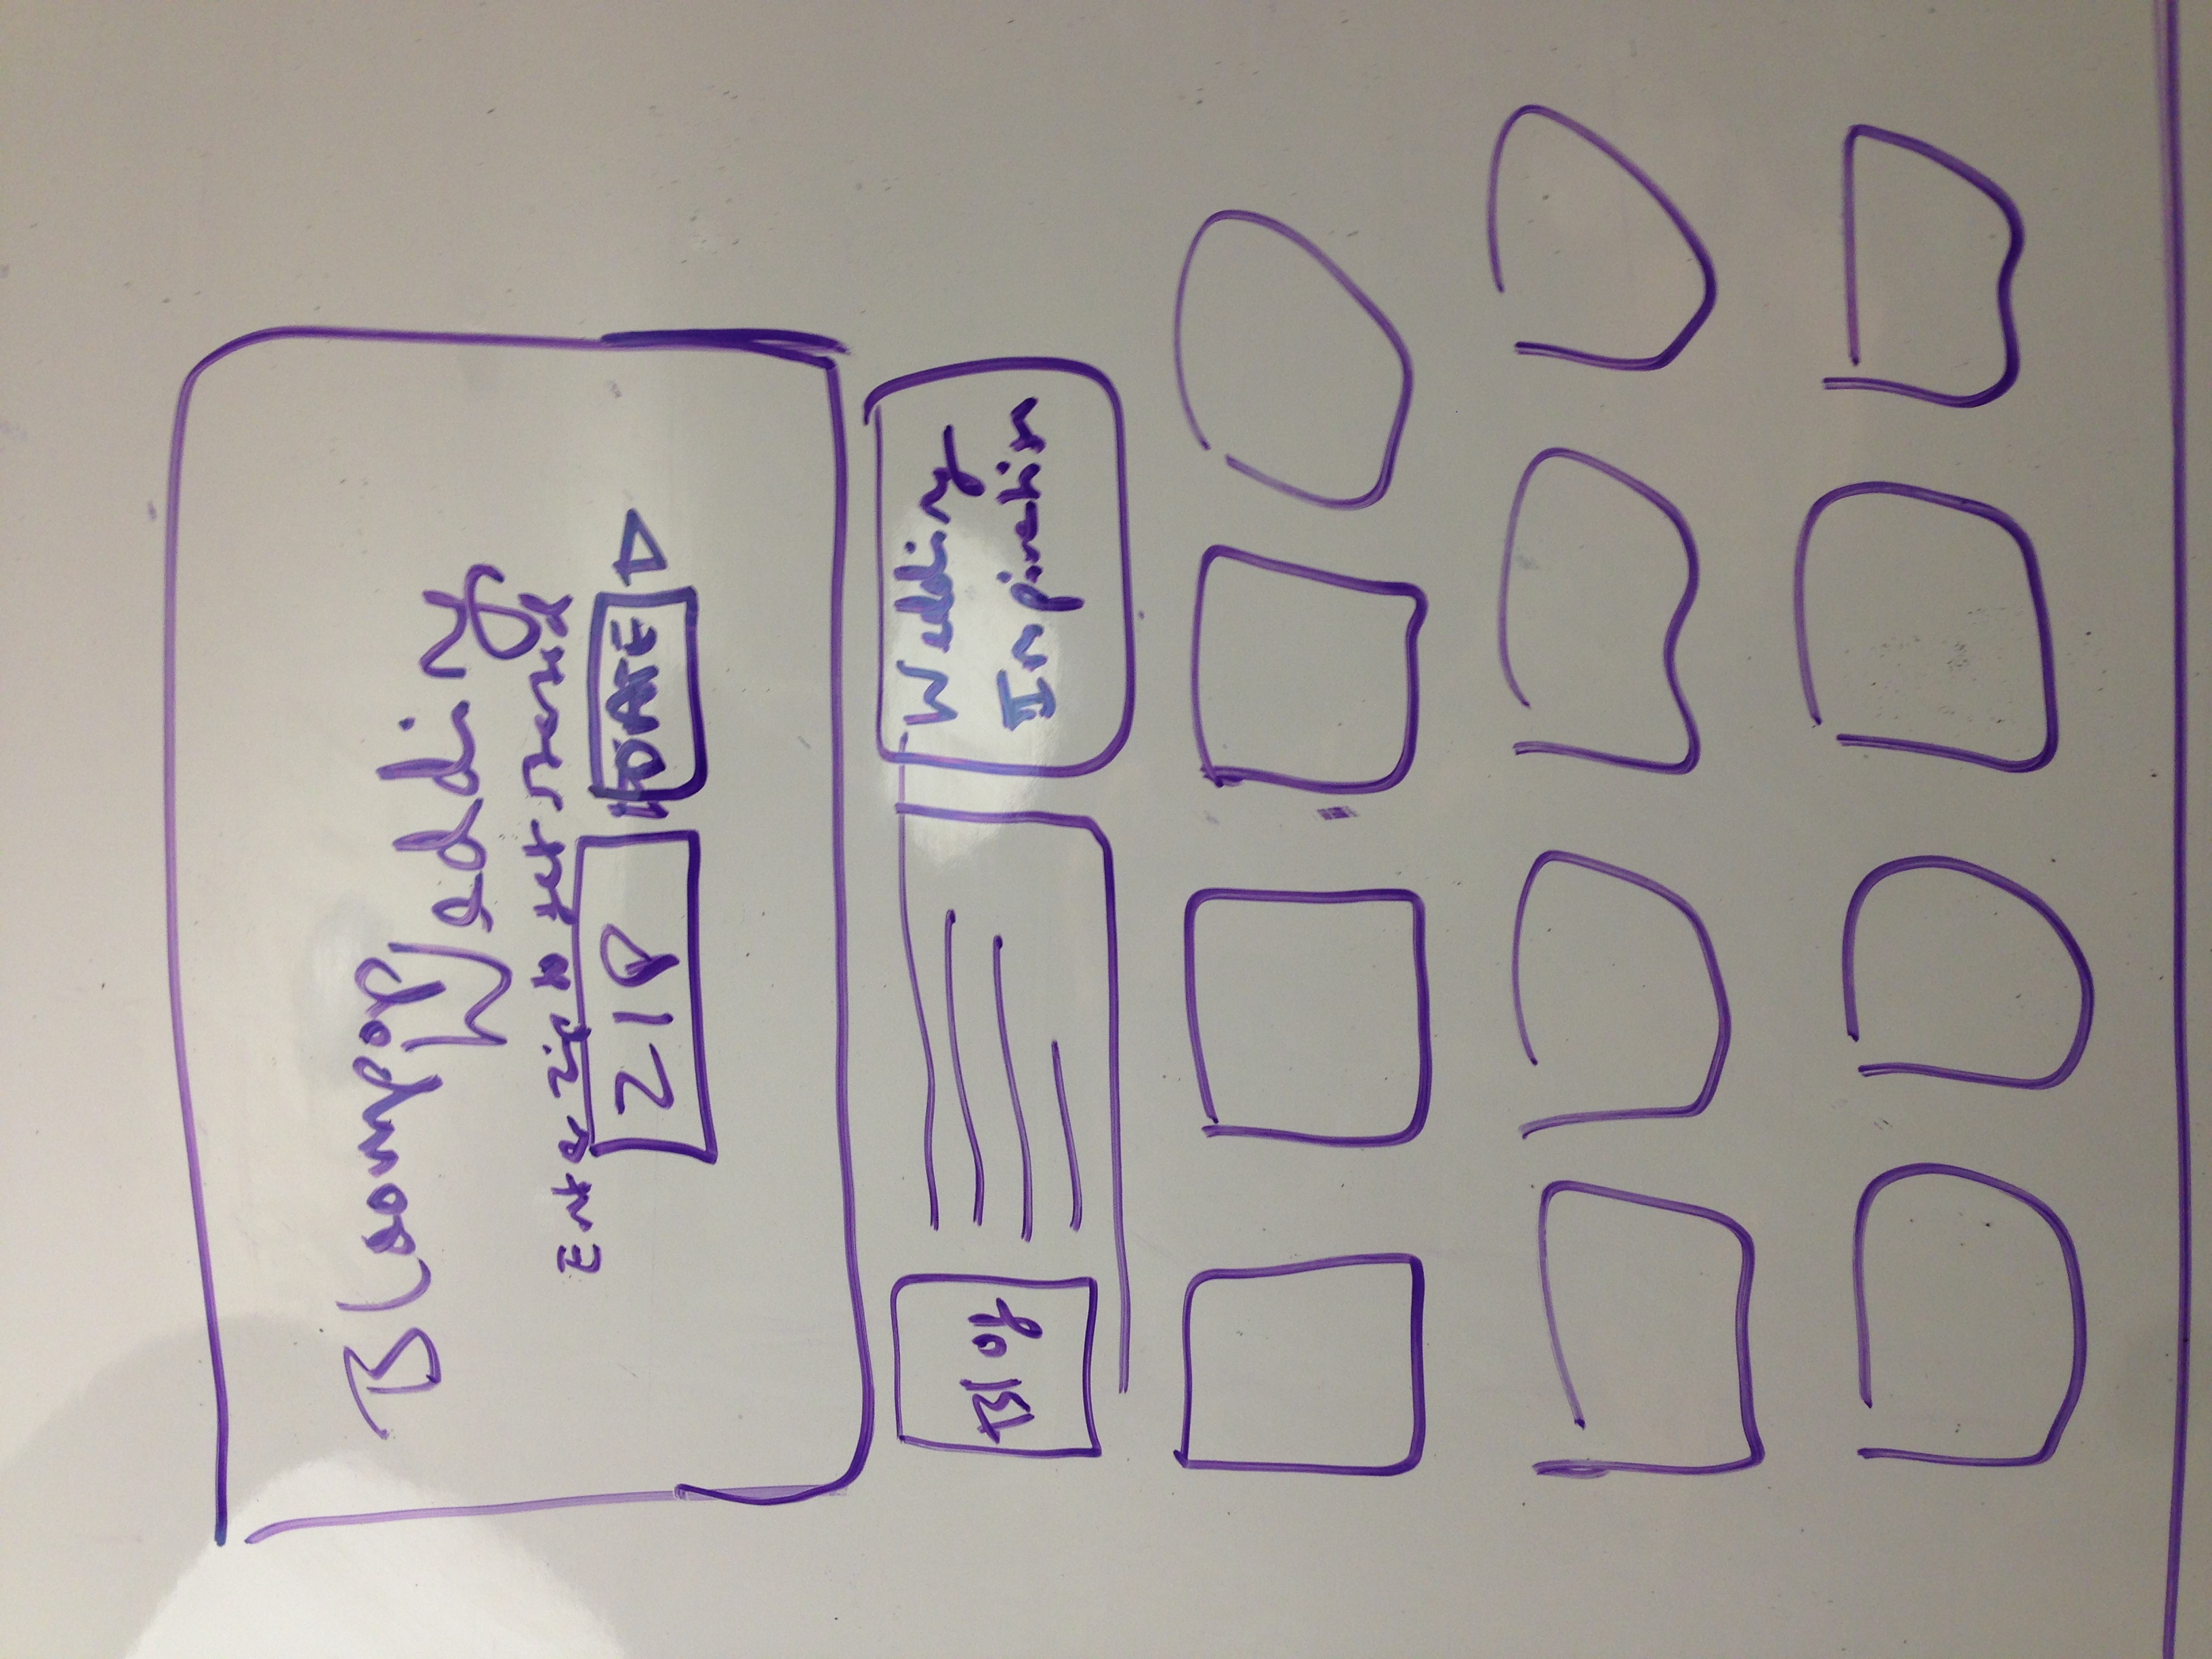 Bloompop
Wedding
Enter zip to get started
ZIP DATE
Blog
Wedding
Inspiration